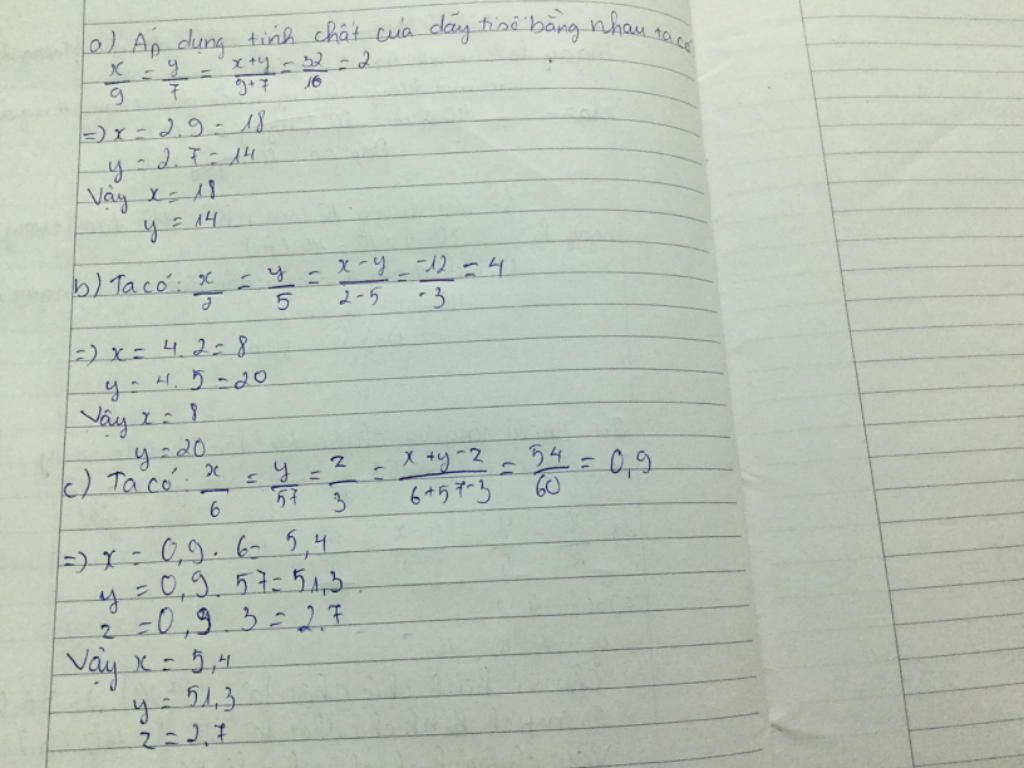 a) Áp dụng tính chất của dãy tỉ số bằng nhau ta có
x/9 = y/7 = x+y/9+7 = 32/16 = 2
=> x = 2.9 = 18
y = 2.7 = 14
Vậy x = 18
y = 14
b) Ta có: x/2 = y/5 = x-y/2-5 = -12/-3 = 4
=> x = 4.2 = 8
y = 4.5 = 20
Vậy x = 8
y = 20
c) Ta có: x/6 = y/57 = z/3 = x+y-z/6+57-3 = 54/60 = 0,9
=> x = 0,9.6 = 5,4
y = 0,9.57 = 51,3
z = 0,9.3 = 2,7
Vậy x = 5,4
y = 51,3
z = 2,7